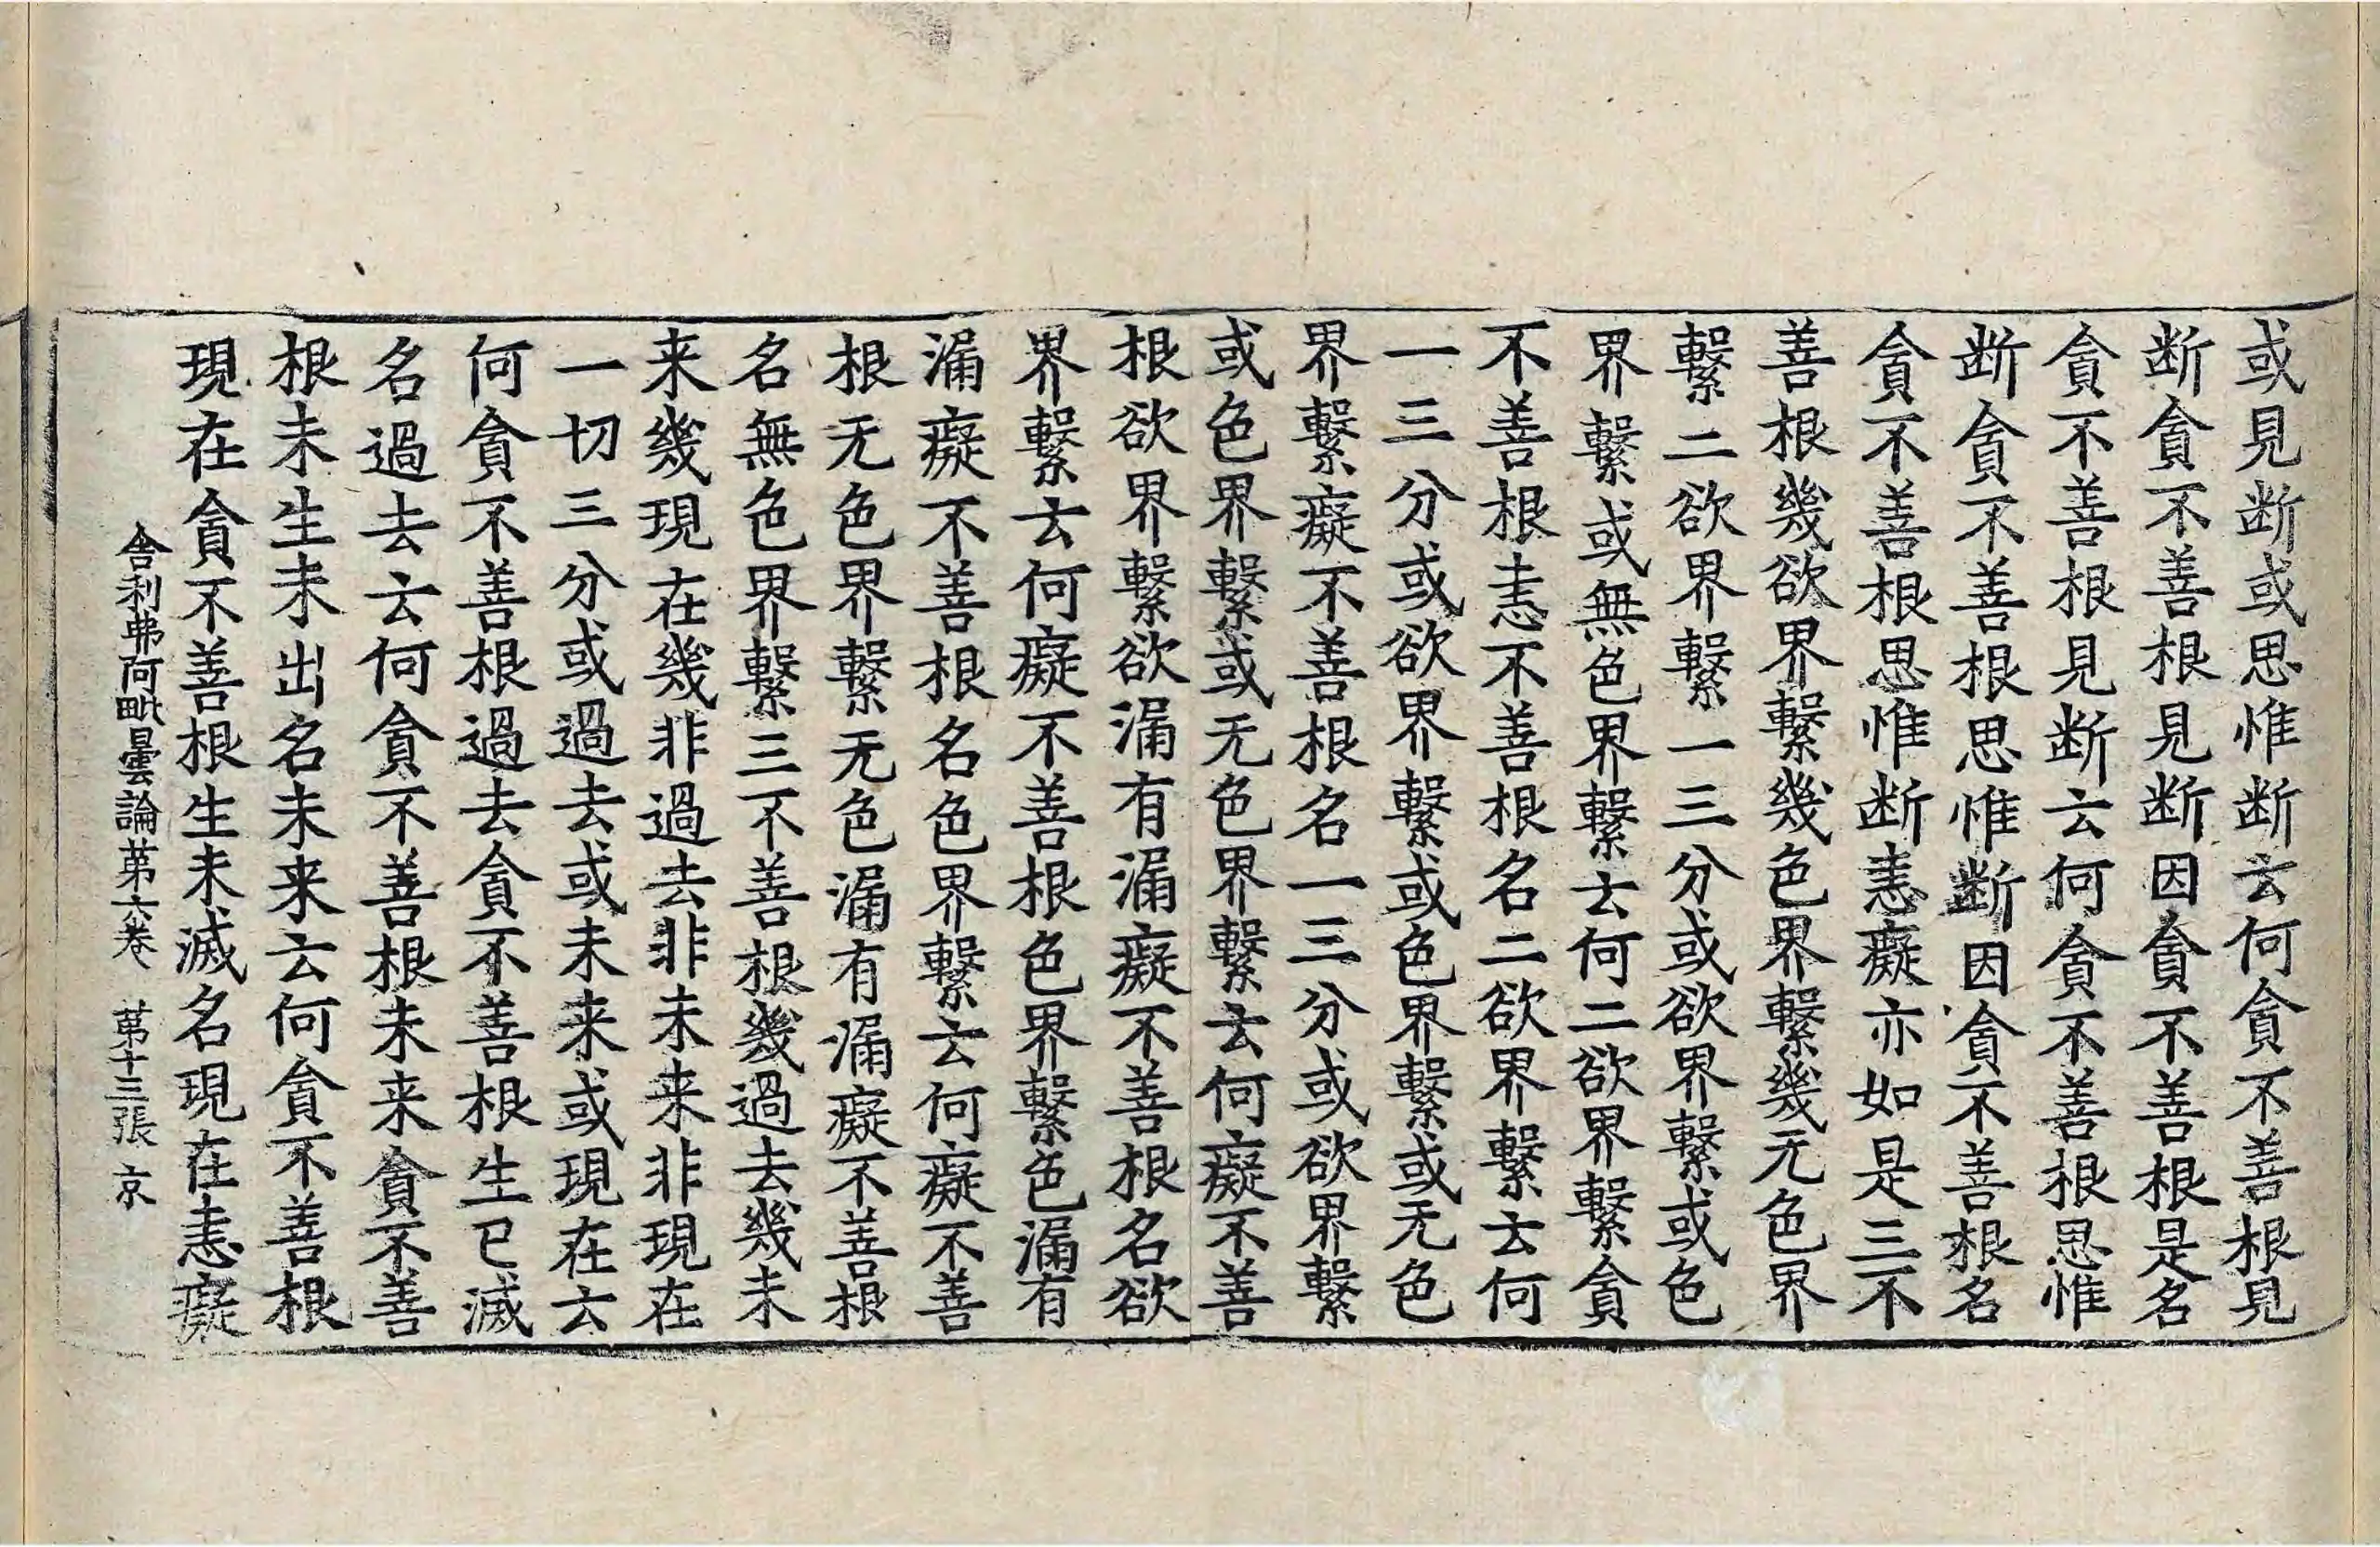 或見断或思惟断云何貪不善根見
断貪不善根見断因貪不善根是名
貪不善根見断云何貪不善根思惟
断貪不善根思惟断因貪不善根名
貪不善根思惟断恚癡亦如是三不
善根幾欲界繫幾色界繫幾无色界
繫二欲界繫一三分或欲界繫或色
界繫或無色界繫云何二欲界繫貪
不善根恚不善根名二欲界繫云何
一三分或欲界繫或色界繫或无色
界繫癡不善根名一三分或欲界繫
或色界繫或无色界繫云何癡不善
根欲界繫欲漏有漏癡不善根名欲
界繫云何癡不善根色界繫色漏有
漏癡不善根名色界繫云何癡不善
根无色界繫无色漏有漏癡不善根
名無色界繫三不善根幾過去幾未
来幾現在幾非過去非未来非現在
一切三分或過去或未来或現在云
何貪不善根過去貪不善根生已滅
名過去云何貪不善根未来貪不善
根未生未出名未来云何貪不善根
現在貪不善根生未滅名現在恚癡
舎利弗阿毗曇論第六卷 第十三張 京